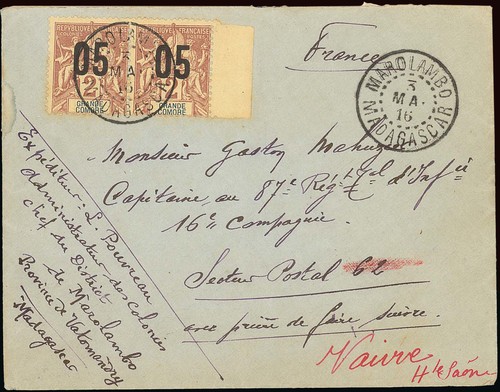 RÉPUBLIQUE FRANÇAISE
RÉPUBLIQUE FRANÇAISE
05
05
GRANDE COMORE
GRANDE COMORE
MAROLAMBO
3
MA.
16
MADAGASCAR
France
Monsieur Gaston
Capitaine au 87e Rég.t T.al d'Inf.ie
16e Compagnie
Secteur Postal 62
avec prière de faire suivre
Vaivre
Hte Saône
Expéditeur: L. Pouvreau
administrateur des colonies
chef du District
de Marolambo
Province de Vatomandry
Madagascar